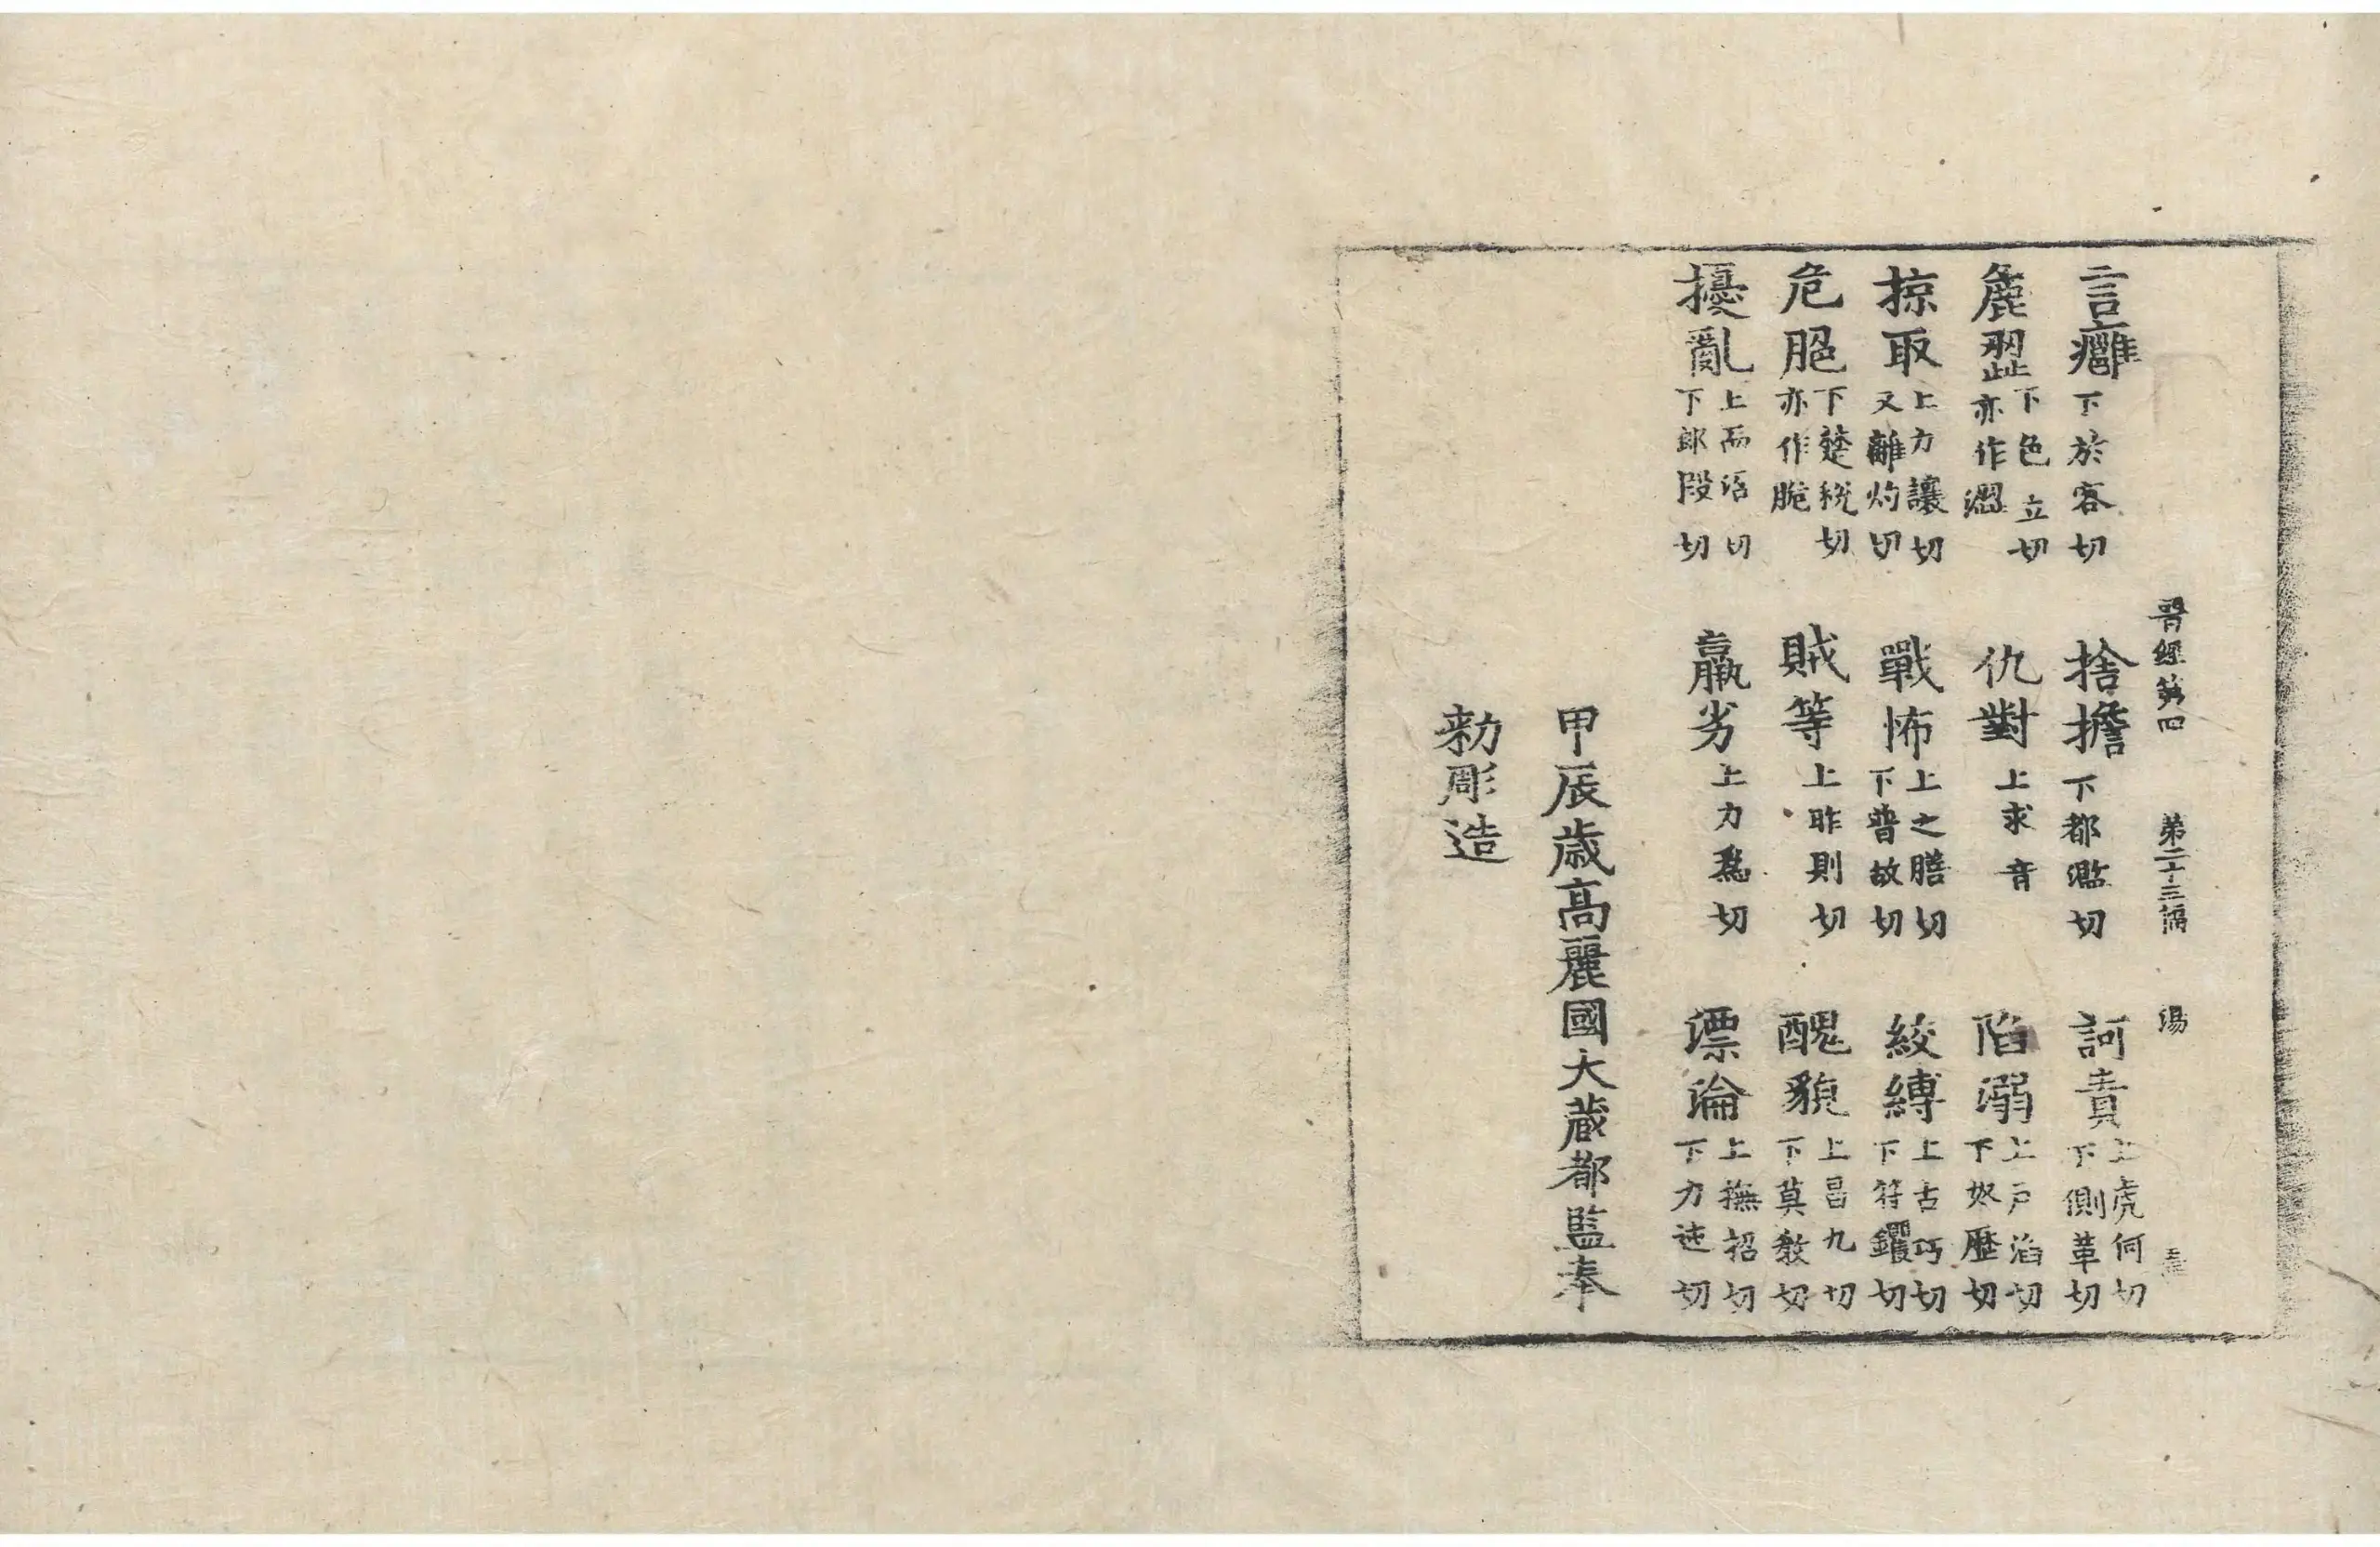 晉經第四 第二十三張 湯
言癰下於容切 捨擔下都濫切 訶責上虎何切下側革切
麁歰下色立切亦作澀 仇對上求音 陷溺上戶滔切下奴歷切
掠取上力讓切又離灼切 戰怖上之膳切下普故切 絞縛上古巧切下符钁切
危脃下楚稅切亦作脆 賊等上昨則切 醜貌上昌九切下莫敎切
擾亂上而沼切下郎段切 羸劣上力爲切 漂淪上撫招切下力迍切
甲辰歲高麗國大藏都監奉
勑彫造